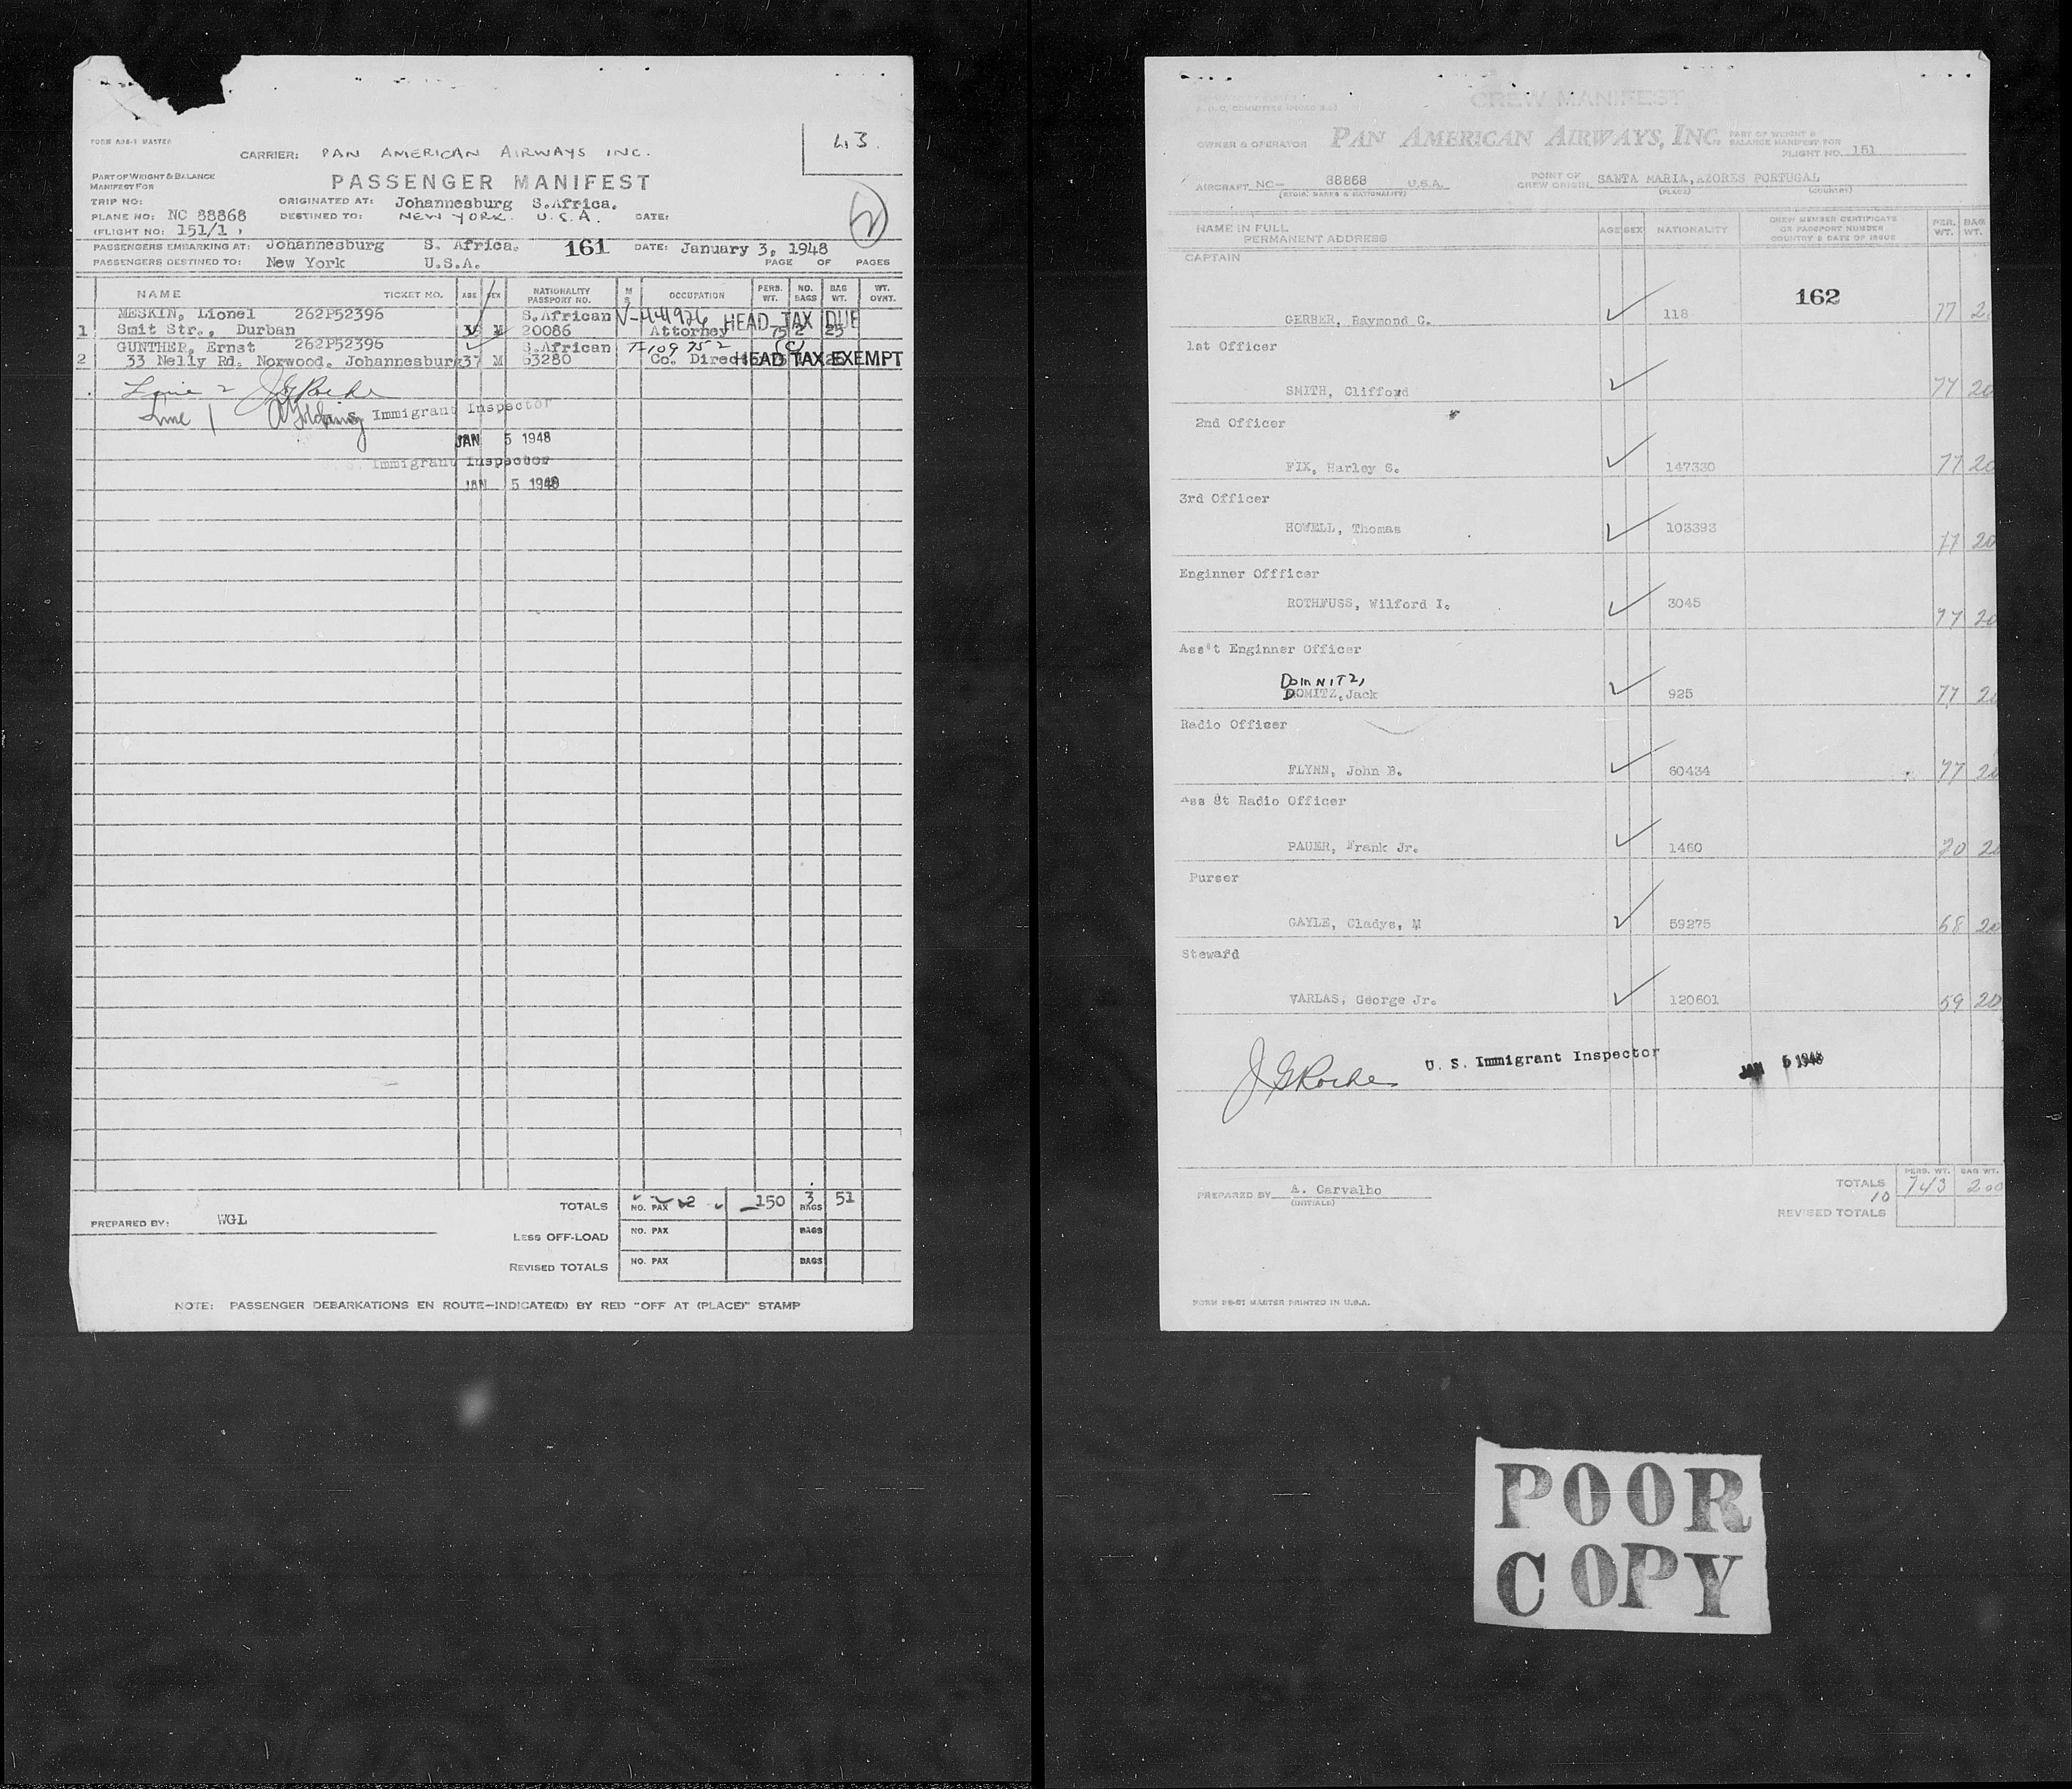 FORM A38-1 MASTER
43
CARRIER: PAN AMERICAN AIRWAYS INC.
PART OF WEIGHT & BALANCE
MANIFEST FOR
PASSENGER MANIFEST
TRIP NO: ORIGINATED AT: Johannesburg S.Africa.
PLANE NO: NC 88868 DESTINED TO: NEW YORK. U.S.A. DATE:
(FLIGHT NO: 151/1 )
2
PASSENGERS EMBARKING AT: Johannesburg S. Africa. 161 DATE: January 3, 1948
PASSENGERS DESTINED TO: New York U.S.A. PAGE OF PAGES
NAME TICKET NO. AGE SEX NATIONALITY PASSPORT NO. M S OCCUPATION PERS. WT. NO. BAGS BAG WT. WT. OVNT.
MESKIN, Lionel 262P52396 S.African V-441926 HEAD TAX DUE
1 Smit Str., Durban 35 M 20086 Attorney 75 2 25
GUNTHER, Ernst 262P52396 S.African T-109752 (C)
2 33 Nelly Rd. Norwood. Johannesburg 37 M 63280 Co. Direct HEAD TAX EXEMPT
Line 2 J G Roche
Line 1 U. S. Immigrant Inspector
JAN 5 1948
U. S. Immigrant Inspector
JAN 5 1948
TOTALS NO. PAX 2 150 3 BAGS 51
PREPARED BY: WGL
LESS OFF-LOAD NO. PAX BAGS
REVISED TOTALS NO. PAX BAGS
NOTE: PASSENGER DEBARKATIONS EN ROUTE—INDICATE(D) BY RED "OFF AT (PLACE)" STAMP
CREW MANIFEST
OWNER & OPERATOR PAN AMERICAN AIRWAYS, INC. PART OF WEIGHT & BALANCE MANIFEST FOR
FLIGHT NO. 151
AIRCRAFT NC- 88868 U.S.A. POINT OF CREW ORIGIN SANTA MARIA,AZORES PORTUGAL
(REGIS. MARKS & NATIONALITY) (PLACE) (COUNTRY)
NAME IN FULL
PERMANENT ADDRESS AGE SEX NATIONALITY CREW MEMBER CERTIFICATE OR PASSPORT NUMBER COUNTRY & DATE OF ISSUE PER. WT. BAG WT.
CAPTAIN
162
GERBER, Raymond C. 118 77 2
1st Officer
SMITH, Clifford 77 20
2nd Officer
FIX, Harley S. 147330 77 20
3rd Officer
HOWELL, Thomas 103393 77 20
Enginner Offficer
ROTHFUSS, Wilford I. 3045 77 20
Ass't Enginner Officer
DOMNITZ,
DOMITZ,Jack 925 77 2
Radio Officer
FLYNN, John B. 60434 77 20
Ass St Radio Officer
PAUER, Frank Jr. 1460 70 20
Purser
GAYLE, Gladys, M 59275 68 20
Steward
VARLAS, George Jr. 120601 59 20
J G Roche U. S. Immigrant Inspector JAN 5 1948
PERS. WT. BAG WT.
PREPARED BY A. Carvalho TOTALS 10 743 200
(INITIALS)
REVISED TOTALS
MASTER PRINTED IN U.S.A.
POOR
COPY